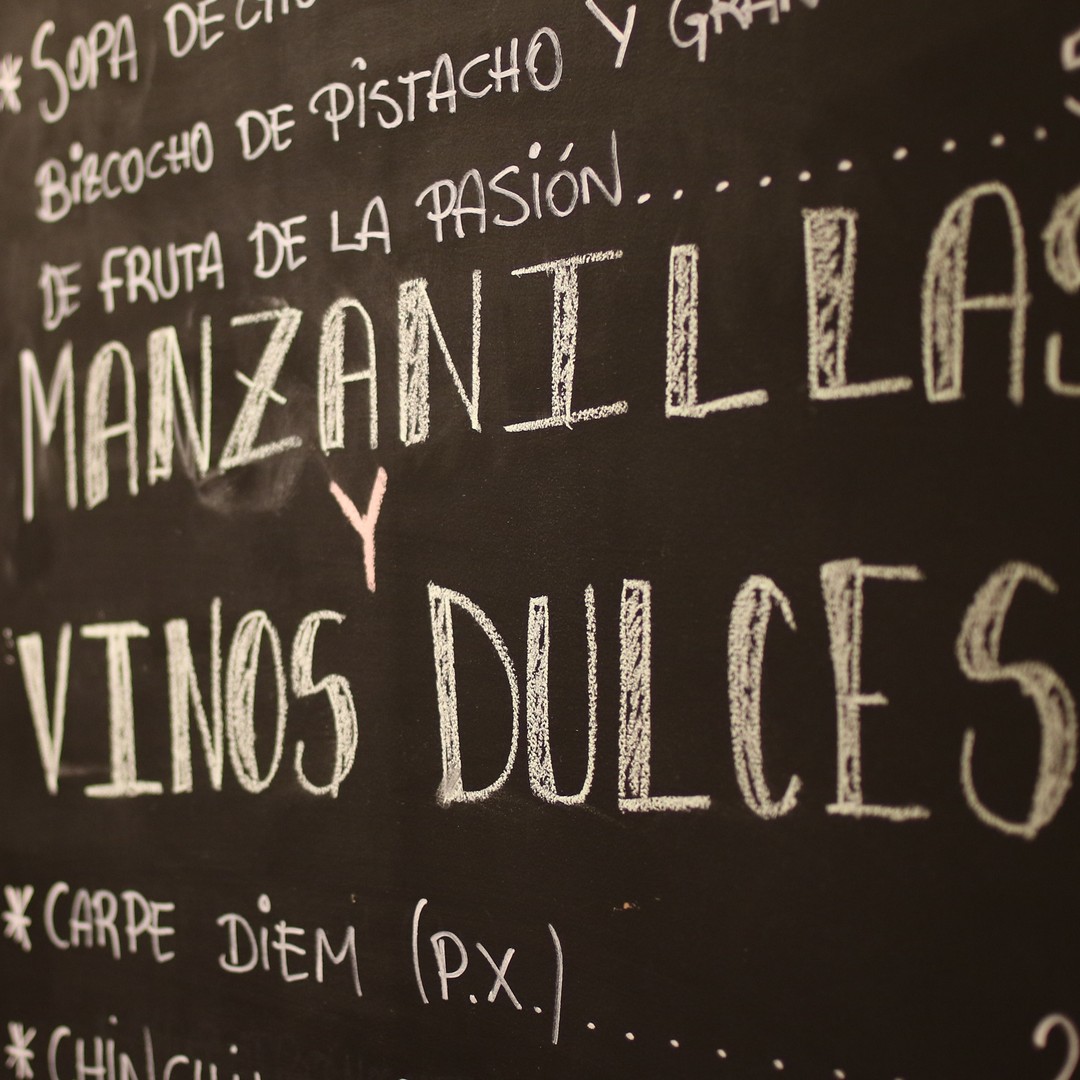 *SOPA DE
BIZCOCHO DE PISTACHO Y
DE FRUTA DE LA PASIÓN..........
MANZANILLAS
Y
VINOS DULCES
*CARPE DIEM (P.X.)....... 2
*